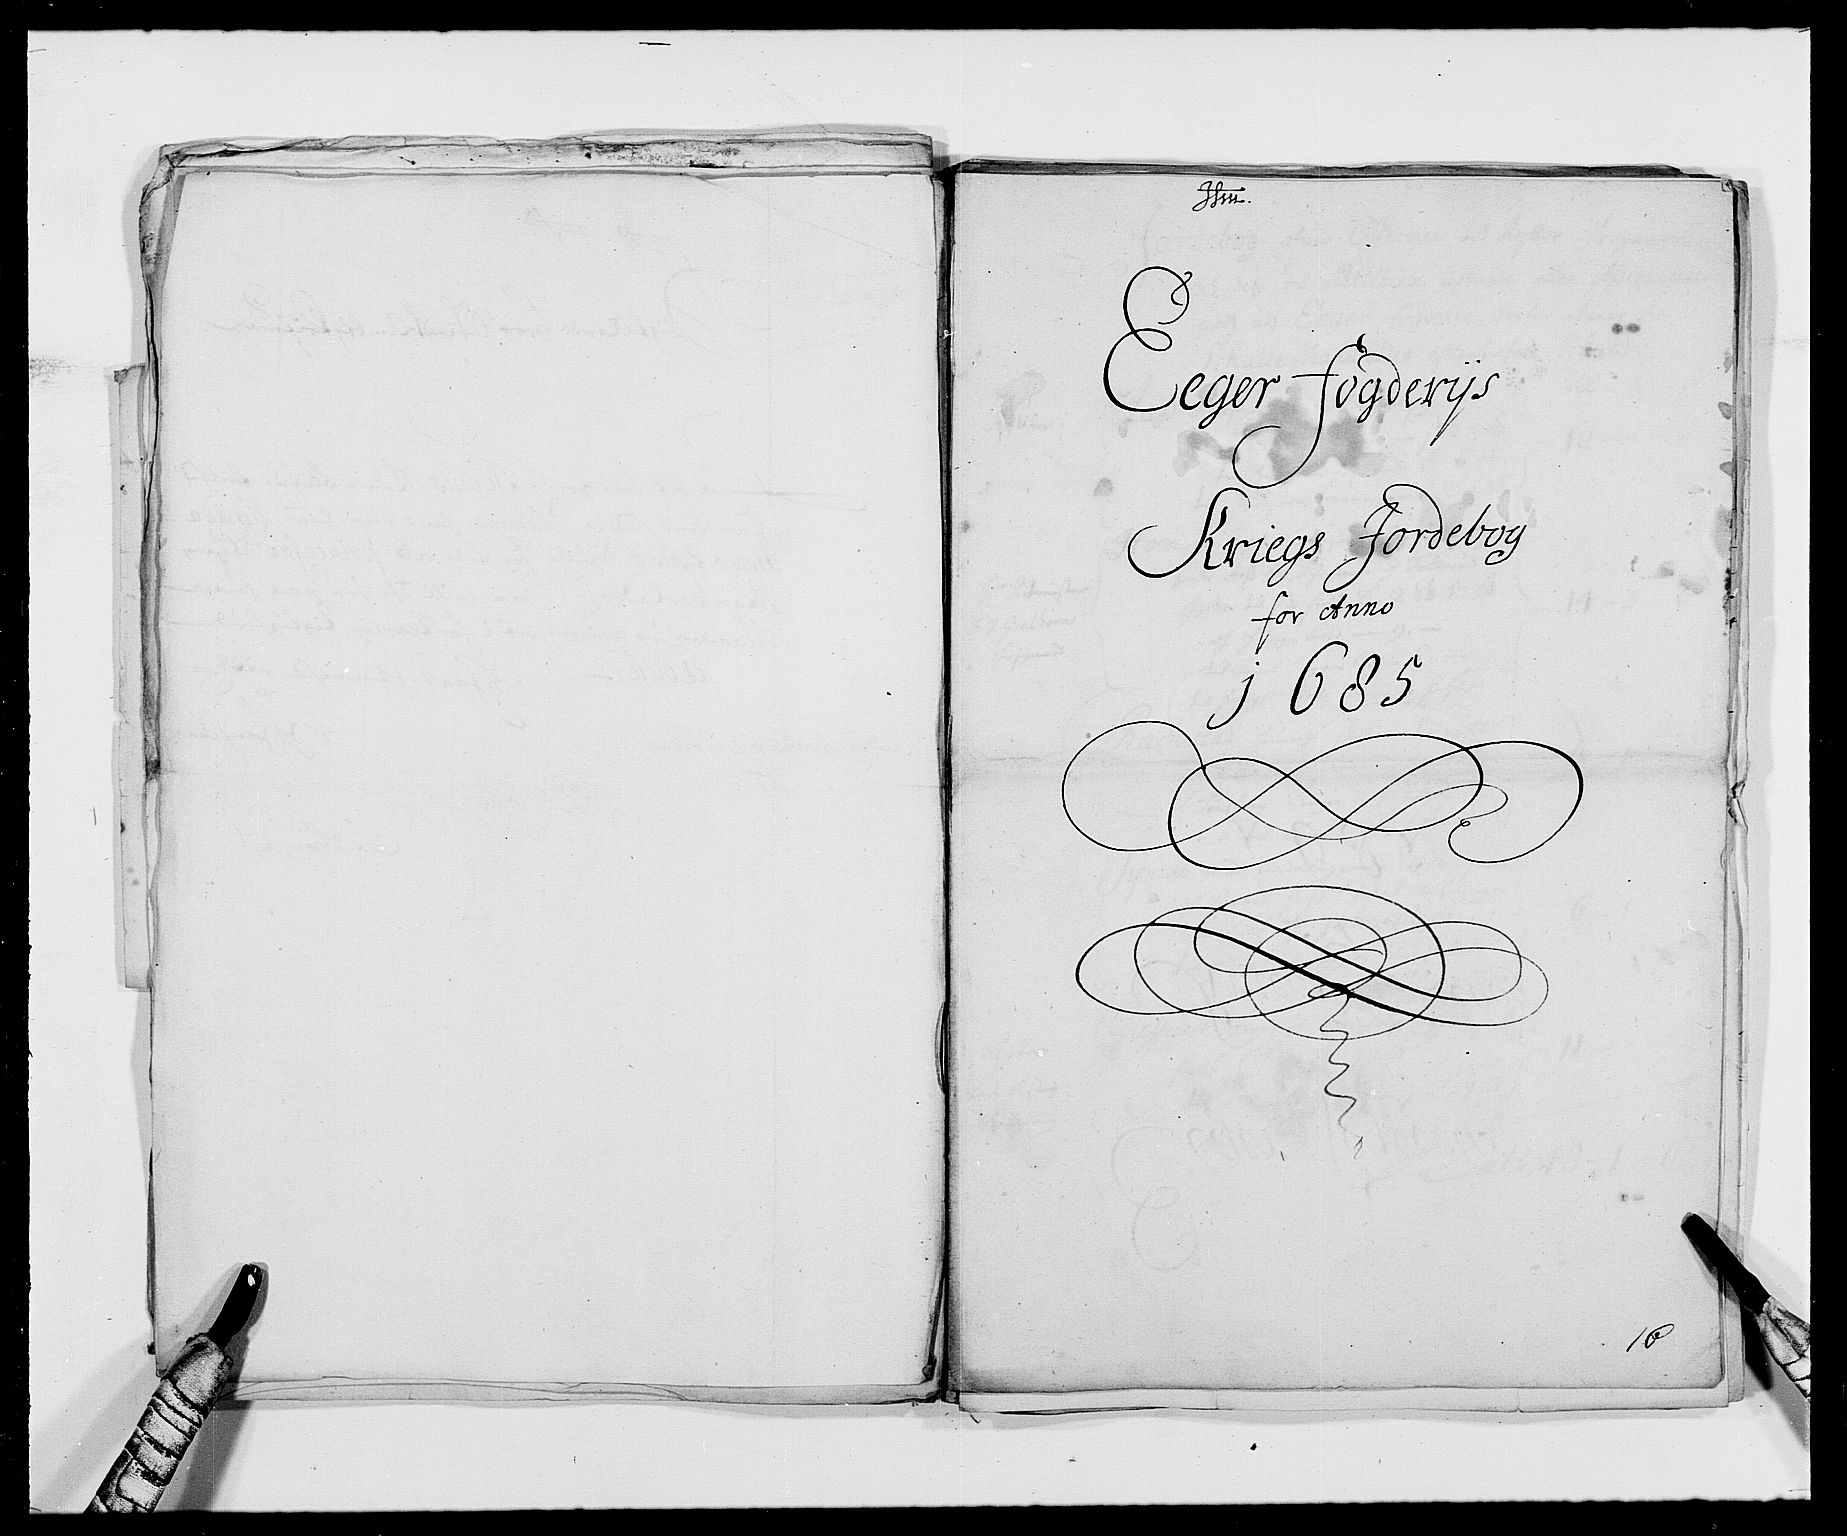 Eeger fógderijs
Kriegs Jordebog
for Anno
1685
10